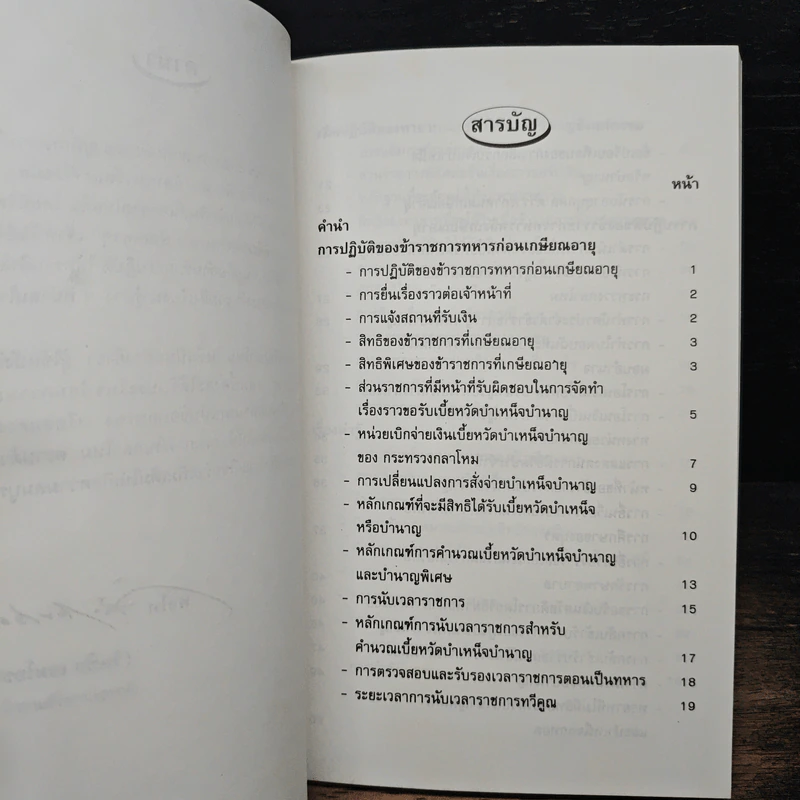 สารบัญ
หน้า
คำนำ
การปฏิบัติของข้าราชการทหารก่อนเกษียณอายุ
- การปฏิบัติของข้าราชการทหารก่อนเกษียณอายุ 1
- การยื่นเรื่องราวต่อเจ้าหน้าที่ 2
- การแจ้งสถานที่รับเงิน 2
- สิทธิของข้าราชการที่เกษียณอายุ 3
- สิทธิพิเศษของข้าราชการที่เกษียณอายุ 3
- ส่วนราชการที่มีหน้าที่รับผิดชอบในการจัดทำ
เรื่องราวขอรับเบี้ยหวัดบำเหน็จบำนาญ 5
- หน่วยเบิกจ่ายเงินเบี้ยหวัดบำเหน็จบำนาญ
ของ กระทรวงกลาโหม 7
- การเปลี่ยนแปลงการสั่งจ่ายบำเหน็จบำนาญ 9
- หลักเกณฑ์ที่จะมีสิทธิได้รับเบี้ยหวัดบำเหน็จ
หรือบำนาญ 10
- หลักเกณฑ์การคำนวณเบี้ยหวัดบำเหน็จบำนาญ
และบำนาญพิเศษ 13
- การนับเวลาราชการ 15
- หลักเกณฑ์การนับเวลาราชการสำหรับ
คำนวณเบี้ยหวัดบำเหน็จบำนาญ 17
- การตรวจสอบและรับรองเวลาราชการตอนเป็นทหาร 18
- ระยะเวลาการนับเวลาราชการทวีคูณ 19